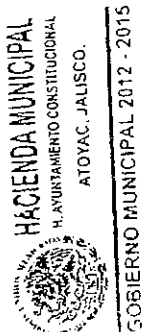 HACIENDA MUNICIPAL
H. AYUNTAMIENTO CONSTITUCIONAL
ATOYAC, JALISCO.
GOBIERNO MUNICIPAL 2012 - 2015